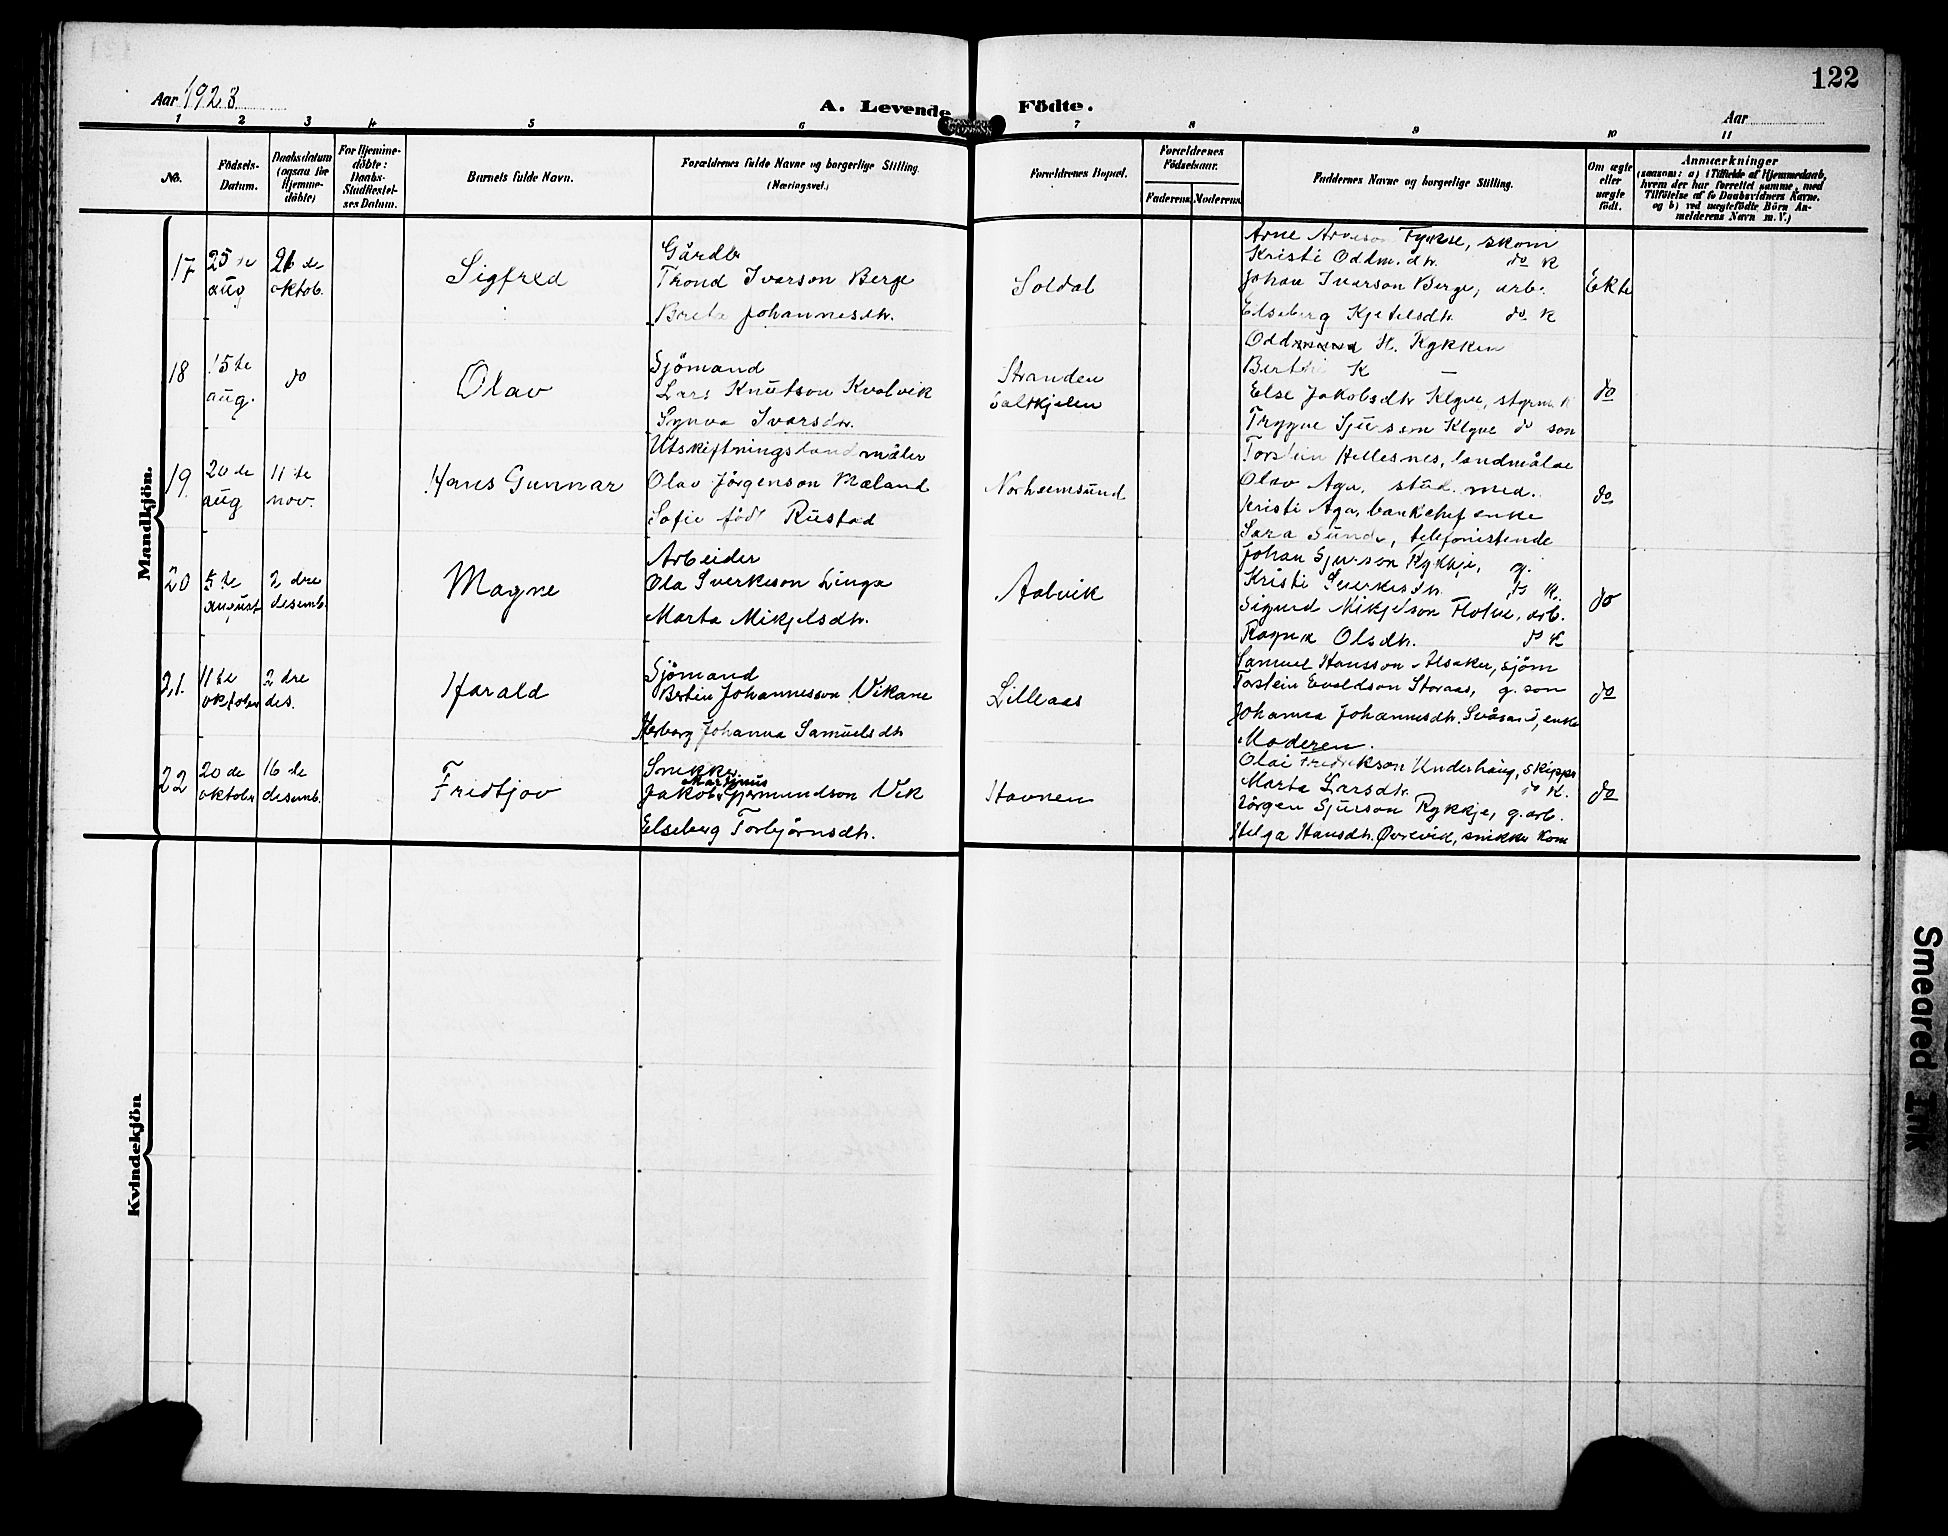 122
Aar 1923
A. Levende Födte.
Aar
1 2 3 4 5 6 7 8 9 10 11
No.
Födsels-
Datum.
Daabsdatum
(ogsaa for
Hjemme-
döbte)
For Hjemme-
döbte:
Daabs-
Stadfæstel-
ses Datum.
Barnets fulde Navn.
Forældrenes fulde Navne og borgerlige Stilling.
(Næringsvei.)
Forældrenes Bopæl.
Forældrenes
Födselsaar.
Faderens.
Moderens.
Faddernes Navne og borgerlige Stilling.
Om ægte
eller
uægte
födt.
Anmærkninger
(saasom: a) i Tilfælde af Hjemmedaab,
hvem der har forrettet samme, med
Tilföielse af to Daabsvidners Navne.
og b) ved uægtefödte Börn An-
melderens Navn m. V.)
Mandkjön.
17
25 de
aug
26 de
oktob.
Sigfred
Gårdb
Trond Ivarson Berge
Brita Johannesdtr.
Soldal
Arne Arneson Fykse, skom
Kristi Oddm.dtr. do K
Johan Ivarson Berge, arb.
Elseberg Kjetelsdtr. do K
Ekte
18
15 de
aug.
do
Olav
Sjömand
Lars Knutson Kvalvik
Synva Ivarsdtr.
Stranden
Saltkjelen
Oddmund H. Rykken
K
Else Jakobsdtr Klyve, styrm. K
Trygve Sjurson Klyve do son
do
19
20 de
aug
11 te
nov.
Hans Gunnar
Utskiftningslandmåler
Olav Jörgenson Mæland
Sofie född Rustad
Norheimsund
Torstein Hellesnes, landmåler
Olav Aga, stud. med.
Kristi Aga, bankchef enke
Sara Sunde, telefonistende
do
20
5 te
august
2 dre
desemb.
Magne
Arbeider
Ola Sverkeson Linga
Marta Mikjelsdtr.
Aalvik
Johan Sjurson Rykkje, g.
Kristi Sverkesdtr. do K.
Sigurd Mikjelson Flotve, arb.
Ragna Olsdtr. do K
do
21.
11 te
oktober
2 dre
des.
Harald
Sjömand
Bertin Johannesson Vikane
Herborg Johanna Samuelsdtr
Lilleaas
Samuel Hansson Alsaker, sjöm
Torstein Evaldson Storaas, g. son
Johanna Johannesdtr. Svåsand, enke
Moderen.
do
22
20 de
oktober
16 de
desemb.
Fridtjov
Snekker
Martinus
Jakob Gjermundson Vik
Elseberg Torbjörnsdtr.
Havnen
Olai Fredrikson Underhaug, skipper
Marta Larsdtr. do K.
Jörgen Sjurson Rykkje, g.arb.
Helga Hansdtr. Øvrevik, snikker Kone
do
Kvindekjön
Smeared Ink